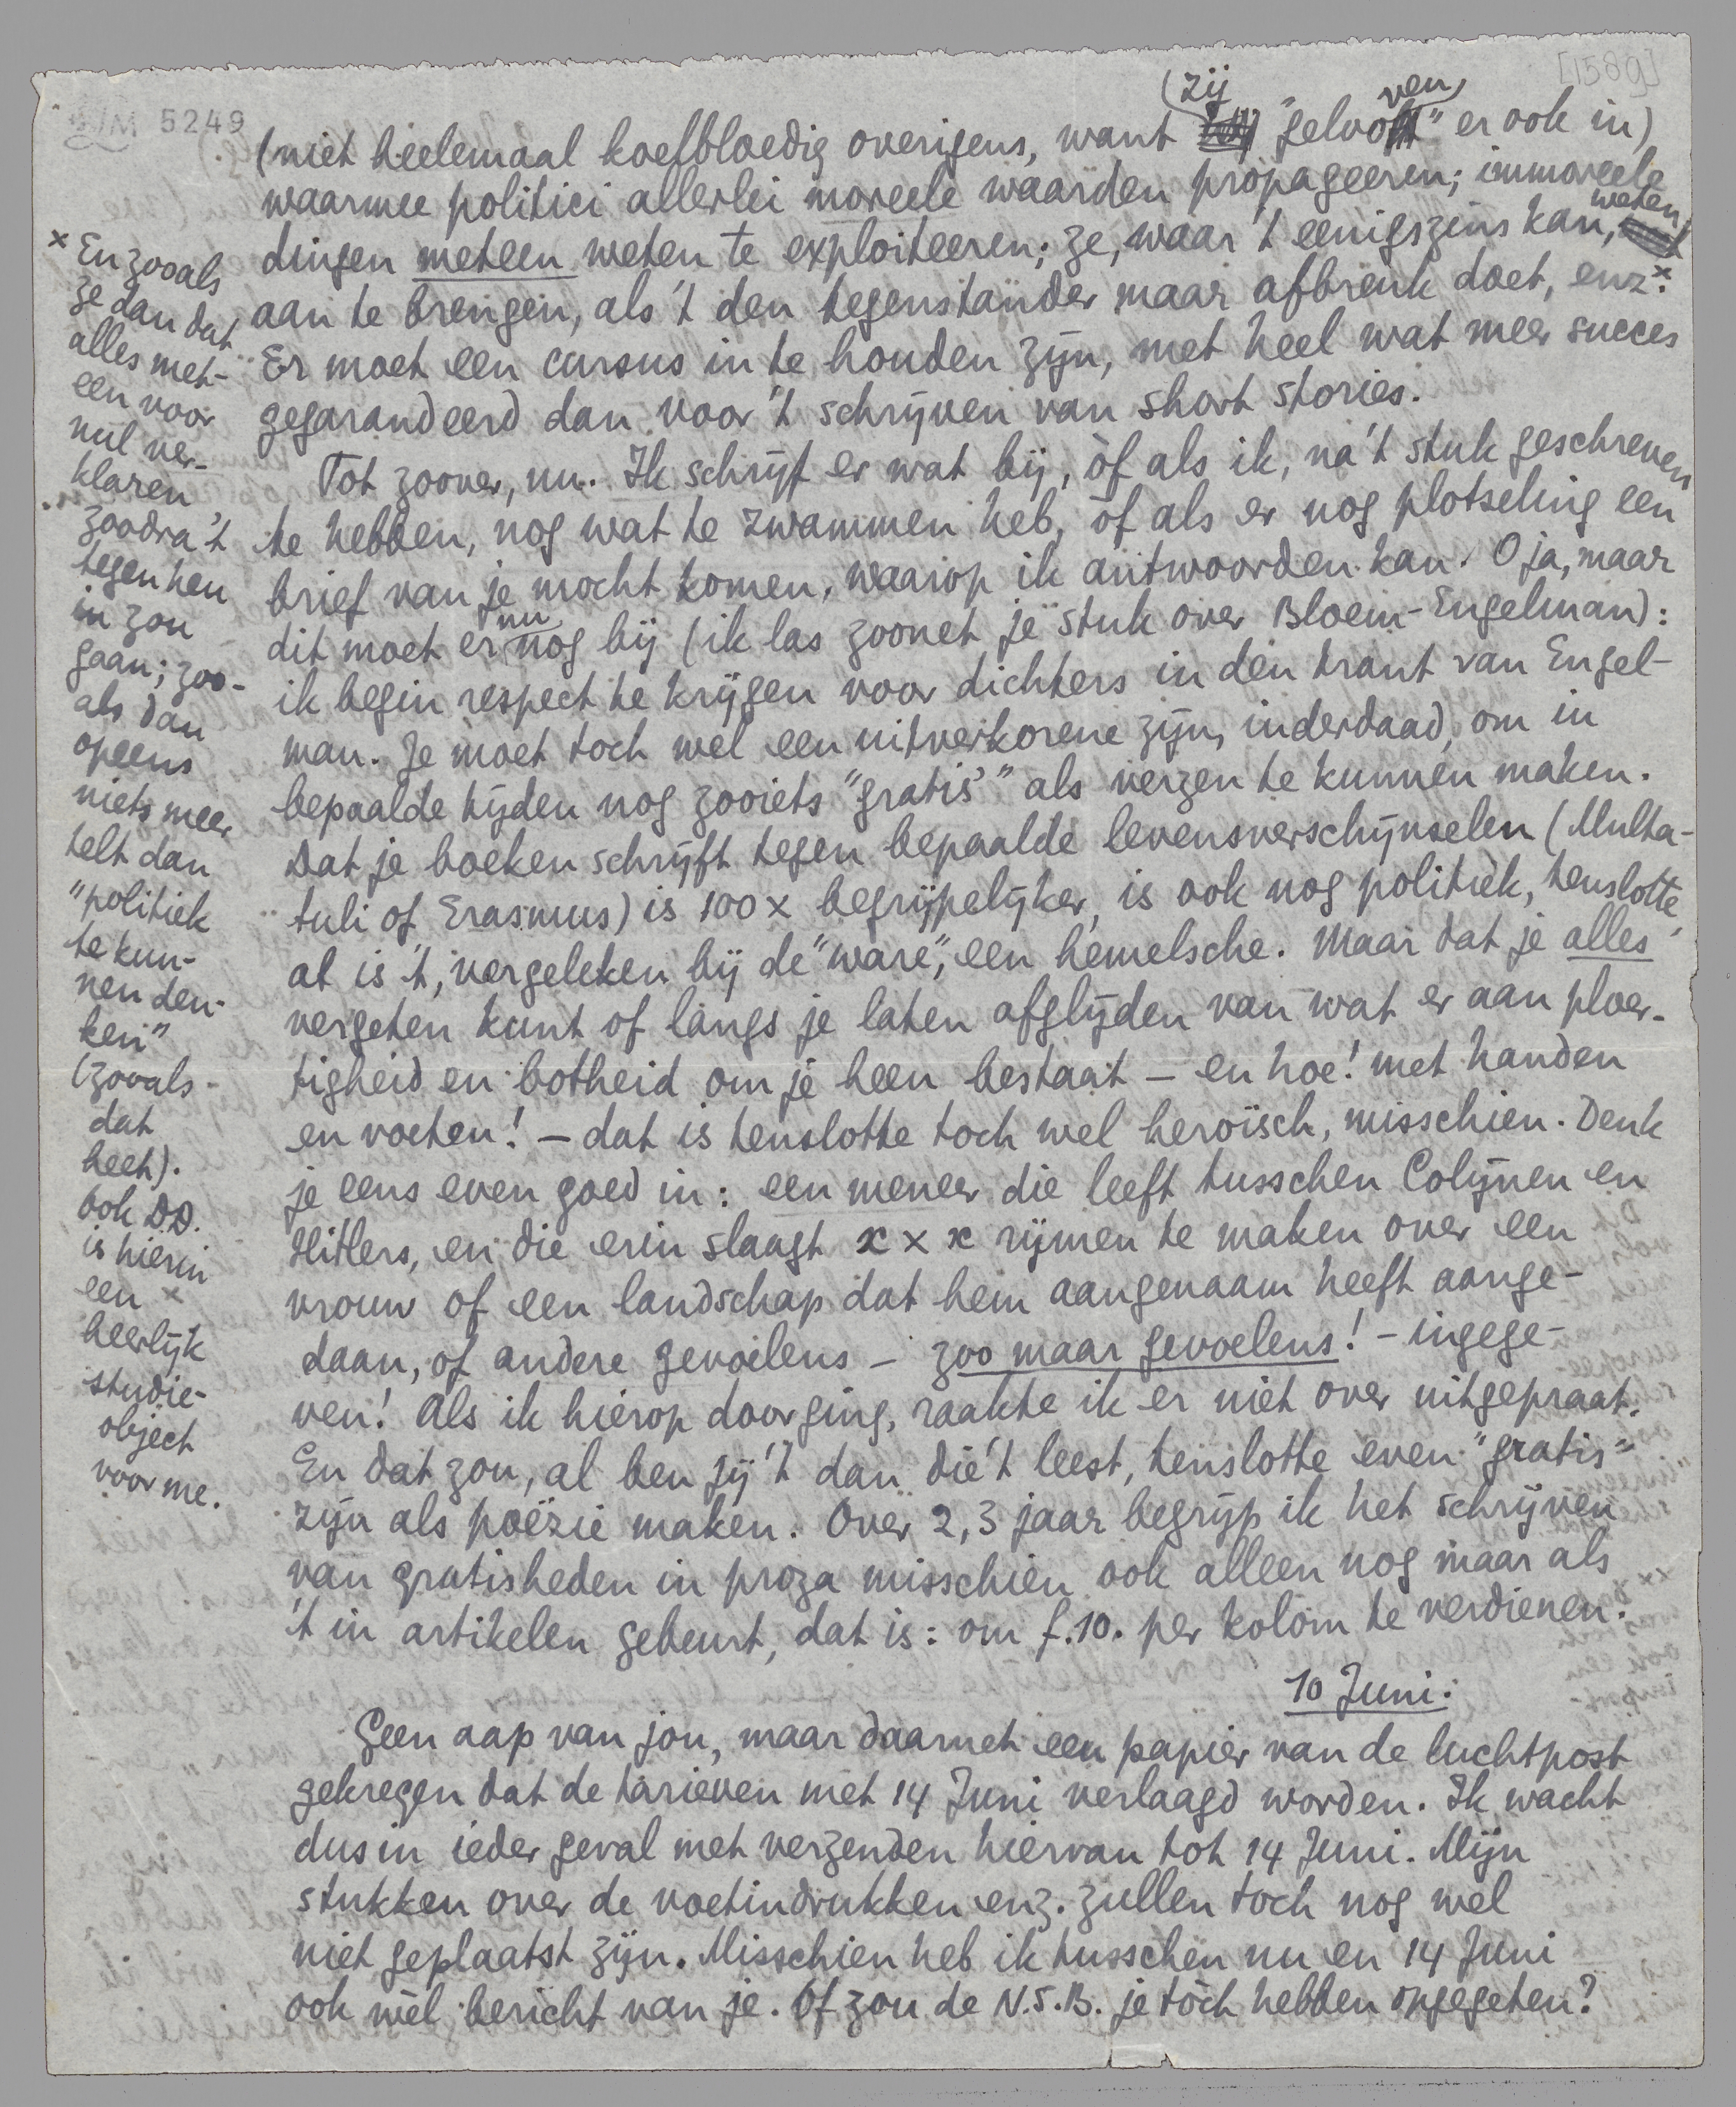 [1589]
LM 5249
(niet heelemaal koelbloedig overigens, want zij "geloven" er ook in)
waarmee politici allerlei moreele waarden propageeren; immoreele
dingen meteen weten te exploiteeren; ze, waar 't eenigszins kan, weten
aan te brengen, als 't den tegenstander maar afbreuk doet, enz.x
Er moet een cursus in te houden zijn, met heel wat meer succes
gegarandeerd dan voor 't schrijven van short stories.
Tot zoover, nu. Ik schrijf er wat bij, òf als ik, na 't stuk geschreven
te hebben, nog wat te zwammen heb, òf als er nog plotseling een
brief van je mocht komen, waarop ik antwoorden kan. O ja, maar
dit moet er nu nog bij (ik las zoonet je stuk over Bloem-Engelman):
ik begin respect te krijgen voor dichters in den trant van Engel-
man. Je moet toch wel een uitverkorene zijn, inderdaad, om in
bepaalde tijden nog zooiets "gratis" als verzen te kunnen maken.
Dat je boeken schrijft tegen bepaalde levensverschijnselen (Multa-
tuli of Erasmus) is 100 x begrijpelijker, is ook nog politiek, tenslotte,
al is 't, vergeleken bij de "ware", een hemelsche. Maar dat je alles
vergeten kunt of langs je laten afglijden van wat er aan ploer-
tigheid en botheid om je heen bestaat – en hoe! met handen
en voeten! – dat is tenslotte toch wel heroïsch, misschien. Denk
je eens even goed in: een meneer die leeft tusschen Colijnen en
Hitlers, en die erin slaagt x x x rijmen te maken over een
vrouw of een landschap dat hem aangenaam heeft aange-
daan, of andere gevoelens – zoo maar gevoelens! – ingege-
ven! Als ik hierop doorging, raakte ik er niet over uitgepraat.
En dat zou, al ben jij 't dan die 't leest, tenslotte even "gratis"
zijn als poëzie maken. Over 2, 3 jaar begrijp ik het schrijven
van gratisheden in proza misschien ook alleen nog maar als
't in artikelen gebeurt, dat is: om f.10. per kolom te verdienen.
10 Juni.
Geen aap van jou, maar daarnet een papier van de luchtpost
gekregen dat de tarieven met 14 Juni verlaagd worden. Ik wacht
dus in ieder geval met verzenden hiervan tot 14 Juni. Mijn
stukken over de voetindrukken enz. zullen toch nog wel
niet geplaatst zijn. Misschien heb ik tusschen nu en 14 Juni
ook wel bericht van je. Of zou de N.S.B. je tòch hebben opgegeten?
x En zooals
ze dan dat
alles met-
een voor
nul ver-
klaren
zoodra 't
tegen hen
in zou
gaan; zoo-
als dan
opeens
niets meer
telt dan
"politiek
te kun-
nen den-
ken"
(zooals
dat
heet).
Ook DD.
is hierin
een
heerlijk
studie-
object
voor me.